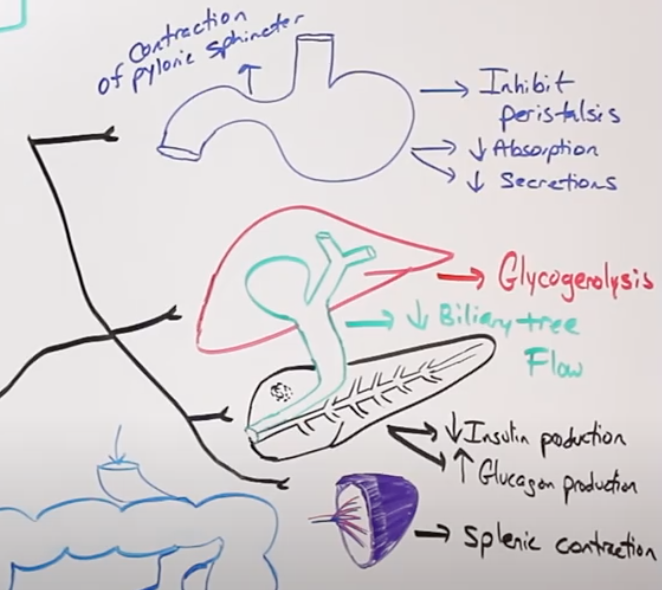 Contraction
of pyloric sphincter
↑
→ Inhibit
peristalsis
→ ↓ Absorption
→ ↓ Secretions
→ Glycogenolysis
→ ↓ Biliary tree
Flow
→ ↓ Insulin production
→ ↑ Glucagon production
→ Splenic contraction